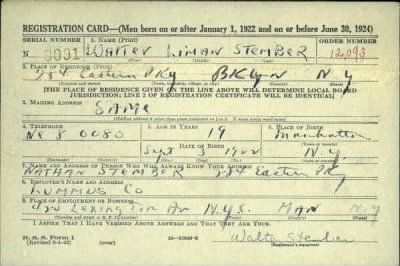 REGISTRATION CARD—(Men born on or after January 1, 1922 and on or before June 30, 1924)
SERIAL NUMBER 1. NAME (Print) ORDER NUMBER
WALTER LIMAN STEMBER 12,093
2. PLACE OF RESIDENCE (Print)
284 Eastern PKy BKLYN N Y
[THE PLACE OF RESIDENCE GIVEN ON THE LINE ABOVE WILL DETERMINE LOCAL BOARD
JURISDICTION; LINE 2 OF REGISTRATION CERTIFICATE WILL BE IDENTICAL]
3. MAILING ADDRESS
SAME
4. TELEPHONE 5. AGE IN YEARS 6. PLACE OF BIRTH
0080 19 Manhattan
DATE OF BIRTH
3 1922 N Y
7. NAME AND ADDRESS OF PERSON WHO WILL ALWAYS KNOW YOUR ADDRESS
NATHAN STEMBER 284 Eastern PKy
8. EMPLOYER'S NAME AND ADDRESS
LUMMUS CO
9. PLACE OF EMPLOYMENT OR BUSINESS
420 LEXINGTON AV N.Y.C. MAN N.Y
I AFFIRM THAT I HAVE VERIFIED ABOVE ANSWERS AND THAT THEY ARE TRUE.
D. S. S. Form 1
Walter Stember